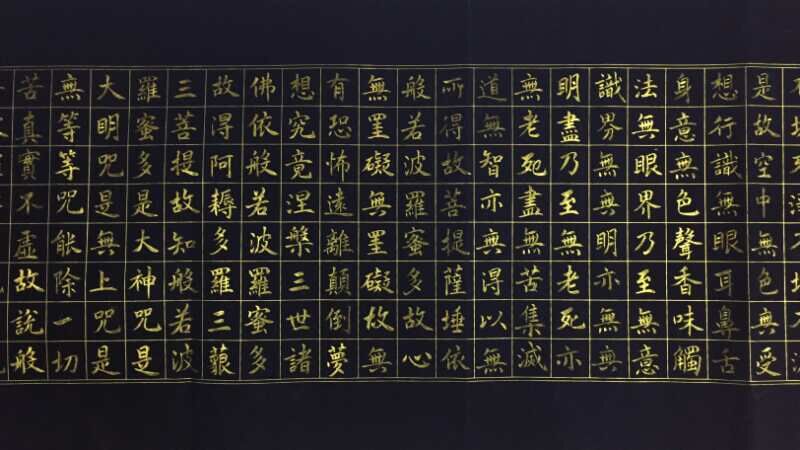 是故空中無色無受
想行識無眼耳鼻舌
身意無色聲香味觸
法無眼界乃至無意
識界無無明亦無無
明盡乃至無老死亦
無老死盡無苦集滅
道無智亦無得以無
所得故菩提薩埵依
般若波羅蜜多故心
無罣礙無罣礙故無
有恐怖遠離顛倒夢
想究竟涅槃三世諸
佛依般若波羅蜜多
故得阿耨多羅三藐
三菩提故知般若波
羅蜜多是大神咒是
大明咒是無上咒是
無等等咒能除一切
苦真實不虛故說般